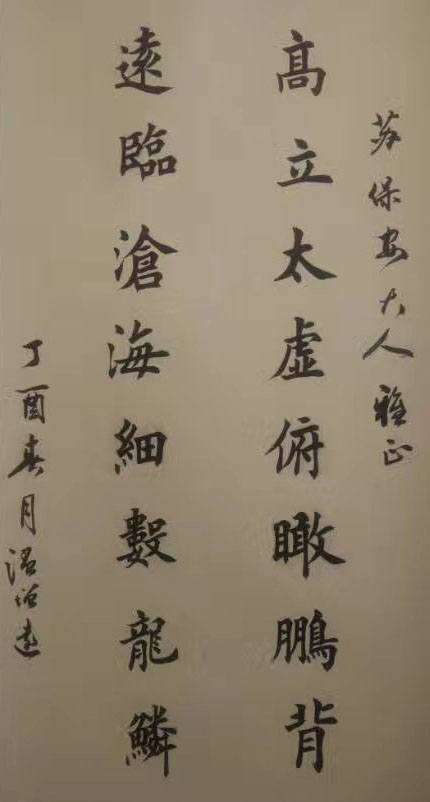 苏保安大人雅正
髙立太虚俯瞰鵬背
遠臨滄海細數龍鱗
丁酉春月温